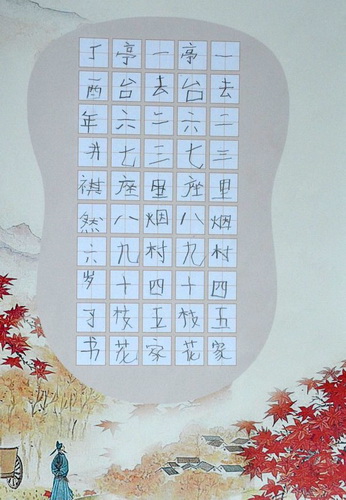 一去二三里烟村四五家
亭台六七座八九十枝花
一去二三里烟村四五家
亭台六七座八九十枝花
丁酉年井祺然六岁书